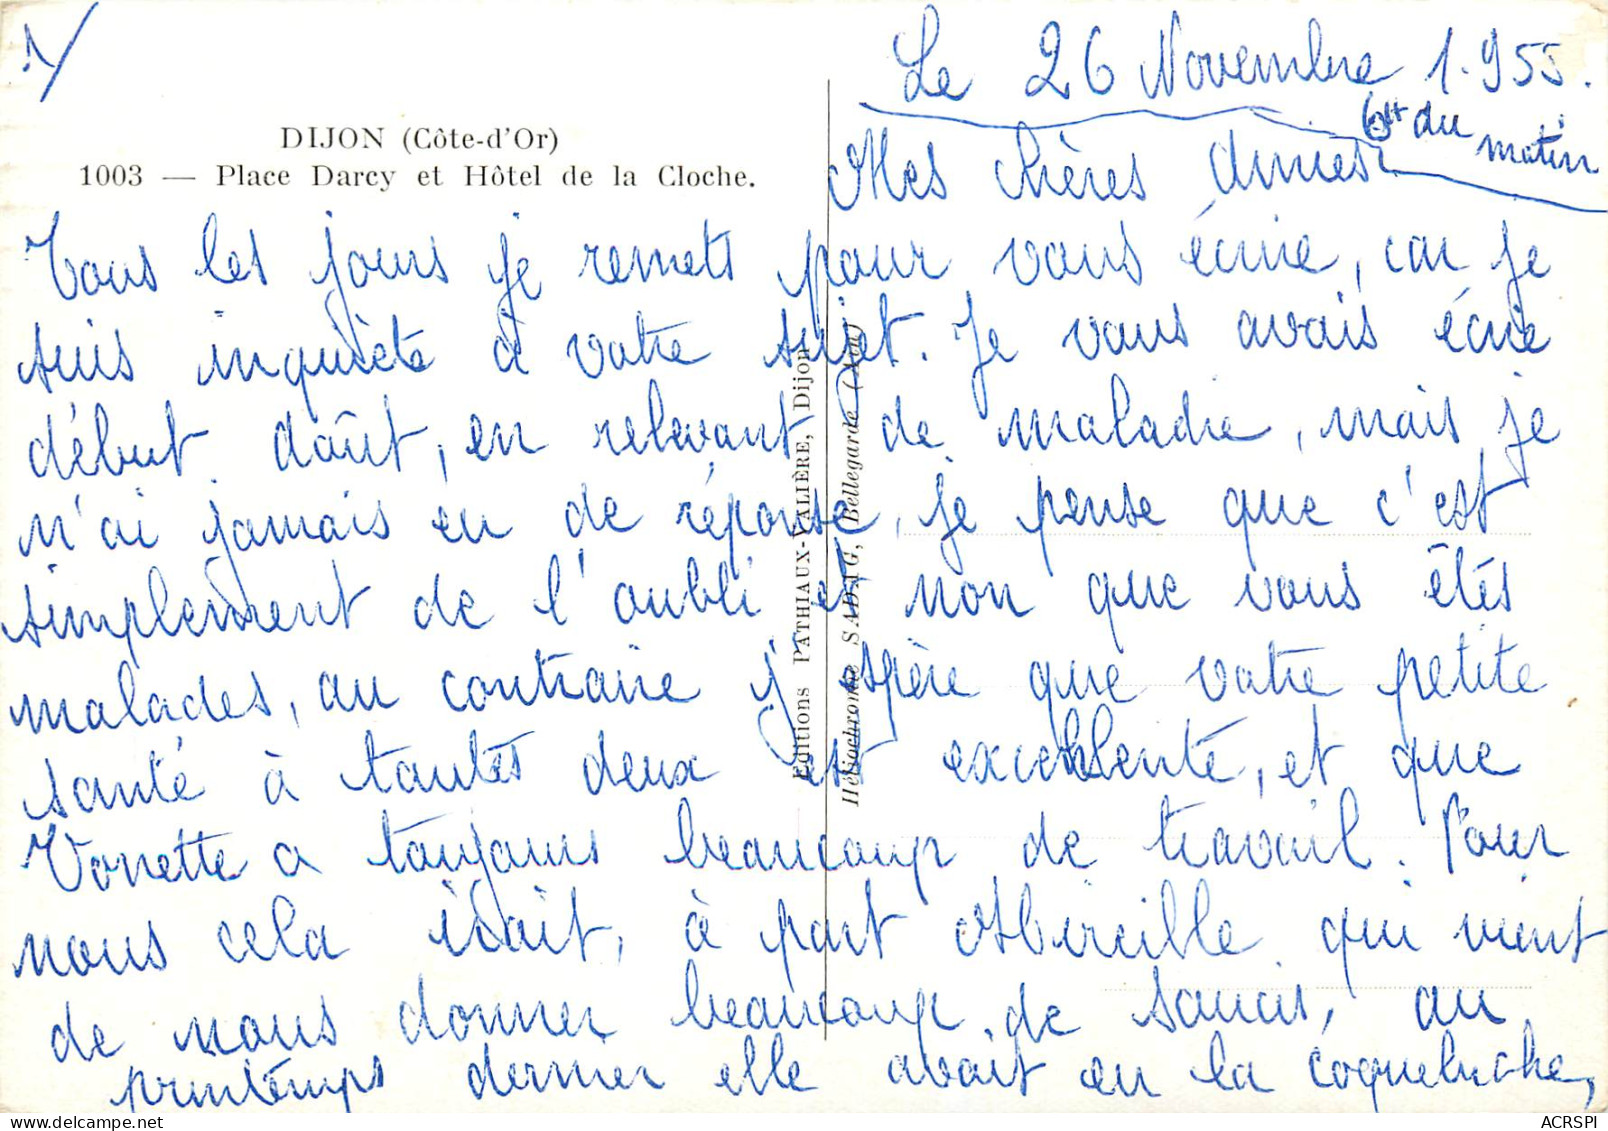 1/
Le 26 Novembre 1.955.
6H du matin
DIJON (Côte-d'Or)
1003 — Place Darcy et Hôtel de la Cloche.
Mes chères Amies.
Tous les jours je remets pour vous écrire, car je
suis inquiète à votre sujet. Je vous avais écrie
début daôut, en relevant de maladie, mais je
n'ai jamais eu de réponse, je pense que c'est
simplement de l'oubli et non que vous êtes
malades, au contraire j'espère que votre petite
santé à toutes deux est excellente, et que
Vonette a toujours beaucoup de travail. Pour
nous cela irait, à part Mireille qui vient
de nous donner beaucoup de soucis, au
printemps dernier elle avait eu la coqueluche,
Editions PATHIAUX-VALIÈRE, Dijon
Héliochromie SADAG, Bellegarde (Ain)
ACRSPI